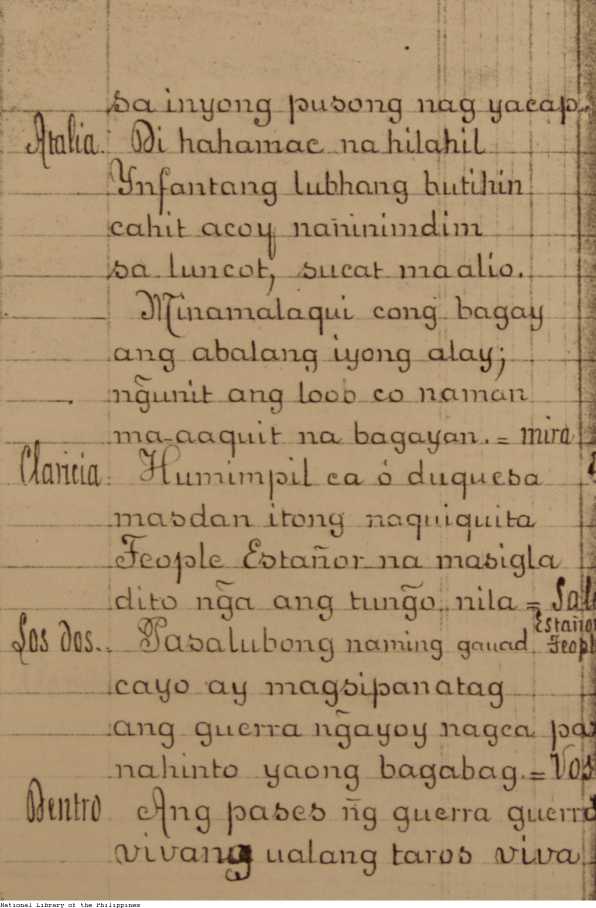 sa inyong pusong nag yacap.
Atalia. Di hahamac na hilahil
Ynfantang lubhang butihin
cahit acoy naninimdim
sa luncot, sucat maalio.
Minamalaqui cong bagay
ang abalang iyong alay;
ng̃unit ang loob co naman
ma-aaquit na bagayan. = mira
Claricia. Humimpil ca ó duquesa
masdan itong naquiquita
Feople Estañor na masigla
dito ng̃a ang tung̃o nila = Sal
Estañor
Los dos. Pasalubong naming gauad Feopl
cayo ay magsipanatag
ang guerra ng̃ayoy nagca pas
nahinto yaong bagabag. = Vos
Dentro Ang pases ñg guerra guerra
vivang ualang taros viva
National Library of the Philippines